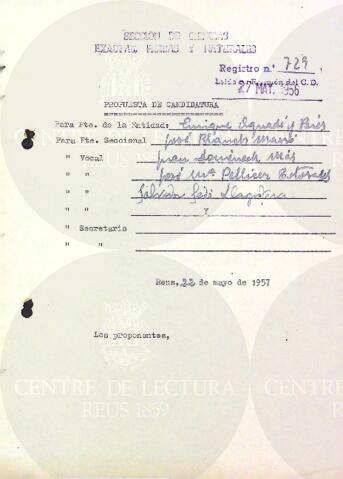 SECCIÓN DE CIENCIAS
EXACTAS, FISICAS Y NATURALES
Registro n.° 729
27 MAY. 1956
PROPUESTA DE CANDIDATURA
Para Pte. de la Entidad: Enrique Aguadé y Parés
Para Pte. Seccional José Blanch
" " Vocal Juan Doménech Más
" " " José Mª Pellicer
" " " Salvador Sedó Llagostera
" " " y
" " Secretario
" " "
Reus, 22 de mayo de 1957
Los proponentes,
CENTRE DE LECTURA
REUS 1859
CENTRE DE LECTURA
REUS 1859